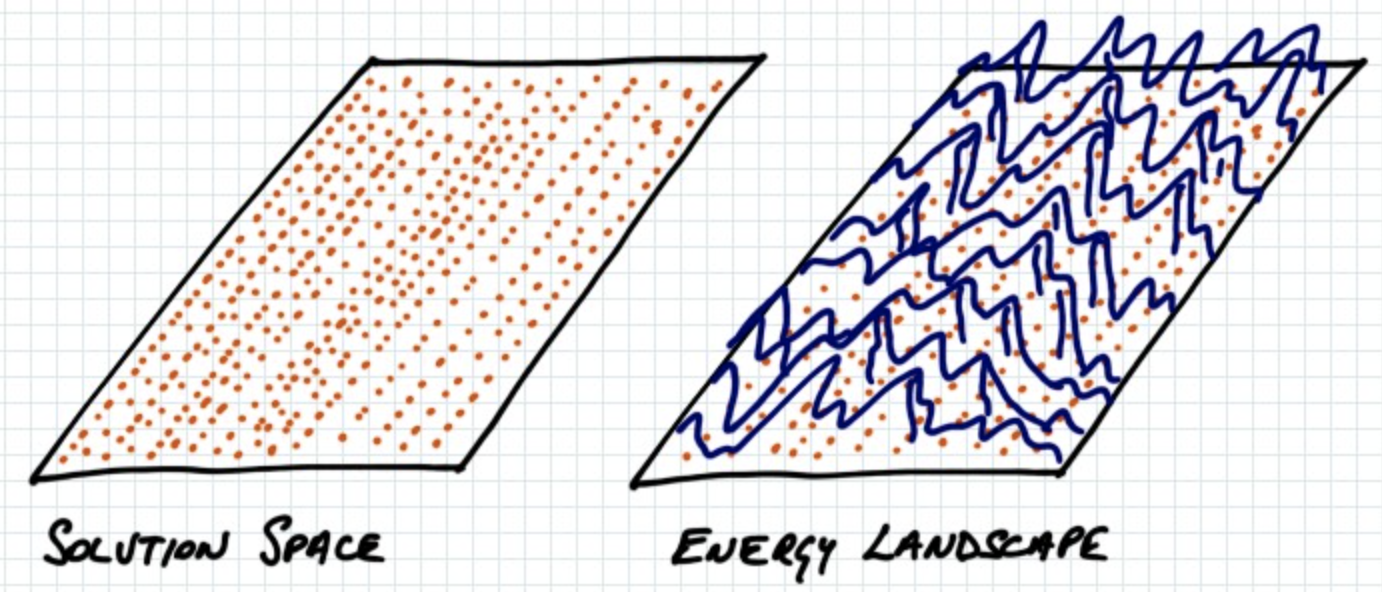 SOLUTION SPACE
ENERGY LANDSCAPE